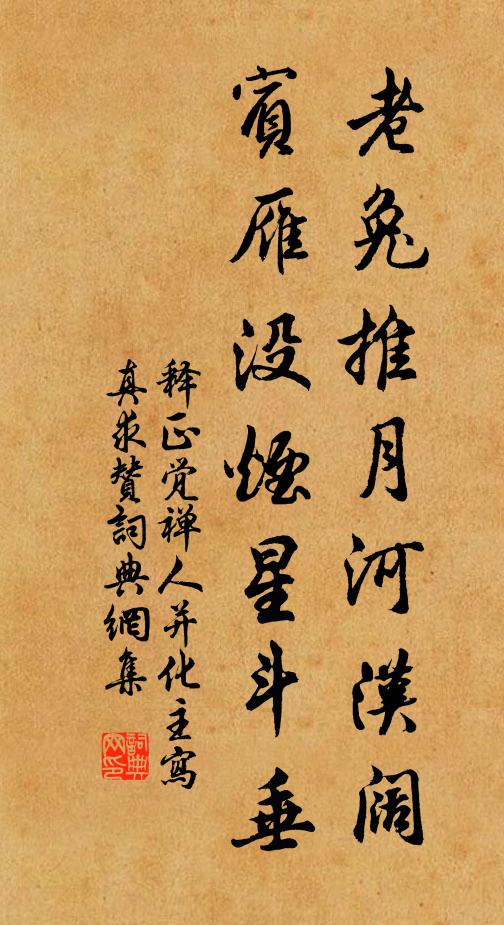 老兔推月河漢阔
賓雁没煙星斗垂
释正觉禅人并化主寫
真求贊詞典網集
詞典
网印